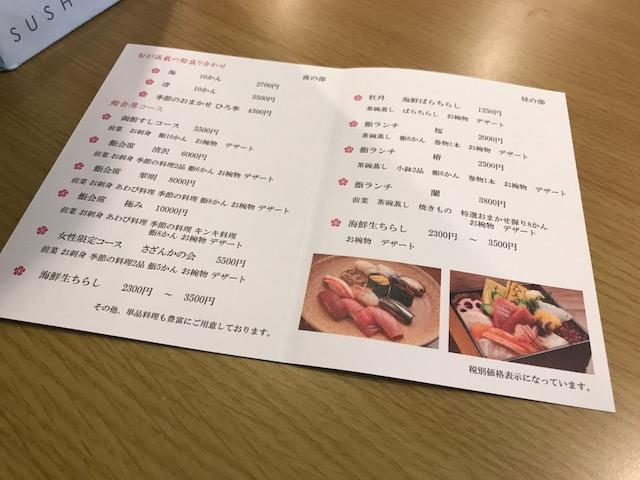 SUSH
旬が満載の鮨盛り合わせ
夜の部
海 10かん 2700円
渚 10かん 3500円
季節のおまかせ ひろ季 4300円
鮨会席コース
函館すしコース 5500円
前菜 お刺身 鮨10かん お椀物 デザート
鮨会席 清沢 6000円
前菜 お刺身 季節の料理2品 鮨6かん お椀物 デザート
鮨会席 翠明 8000円
前菜 お刺身 あわび料理 季節の料理 鮨8かん お椀物 デザート
鮨会席 極み 10000円
前菜 お刺身 あわび料理 季節の料理 キンキ料理
鮨8かん お椀物 デザート
女性限定コース さざんかの会 5500円
前菜 お刺身 季節の料理2品 鮨5かん お椀物 デザート
海鮮生ちらし 2300円 ～ 3500円
その他、単品料理も豊富にご用意しております。
昼の部
牡丹 海鮮ばらちらし 1250円
茶碗蒸し ばらちらし お椀物 デザート
鮨ランチ 桜 2000円
茶碗蒸し 鮨6かん 巻物1本 お椀物 デザート
鮨ランチ 椿 2500円
茶碗蒸し 小鉢2品 鮨6かん 巻物1本 お椀物 デザート
鮨ランチ 蘭 3800円
前菜 茶碗蒸し 焼きもの 特選おまかせ握り8かん
お椀物 デザート
海鮮生ちらし 2300円 ～ 3500円
お椀物 デザート
税別価格表示になっています。